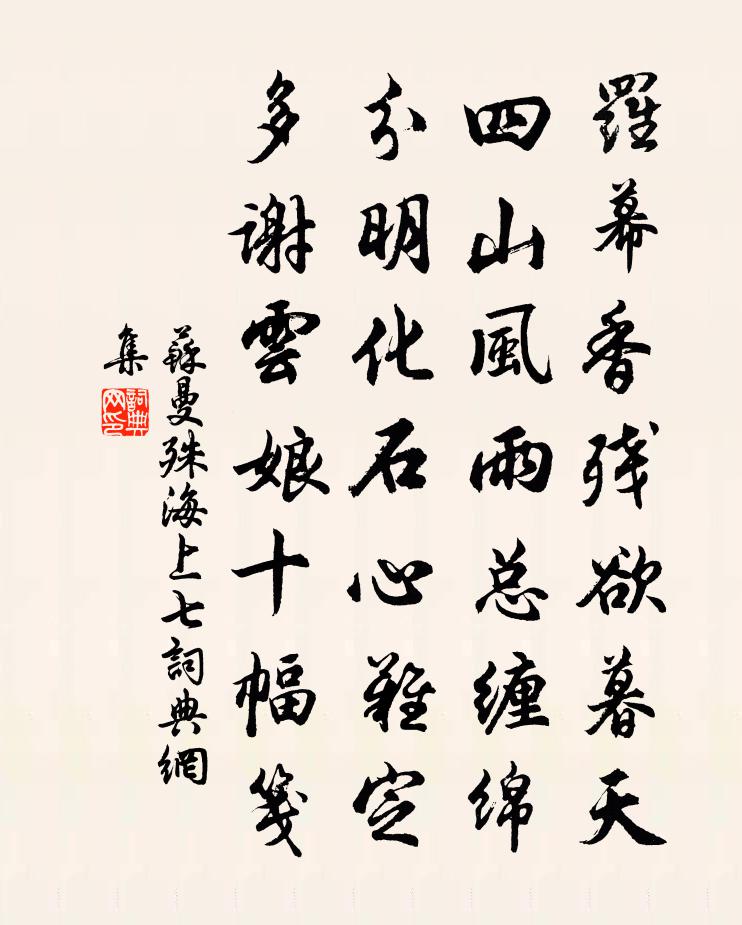 羅幕香殘欲暮天
四山風雨总纏綿
分明化石心難定
多謝雲娘十幅箋
蘇曼殊海上七詞典網
集
詞典
网印